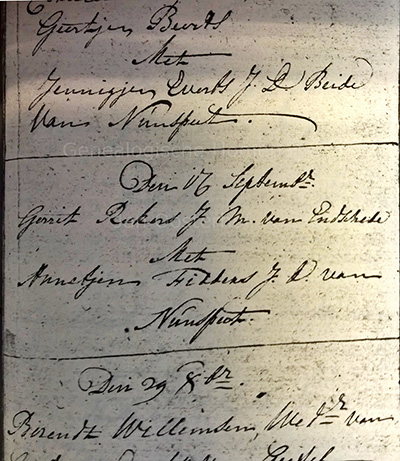 Geertjen Beerts
Met
Jennigjen Everts J. D. Beide
Van Nunspeet.
Den 17 Septembr.
Gerrit Reekers J. M. van Endschede
Met
Annetjen Fiddens J. D. van
Nunspeet.
Den 29 8br.
Berendt Willemsen, Wedr. van